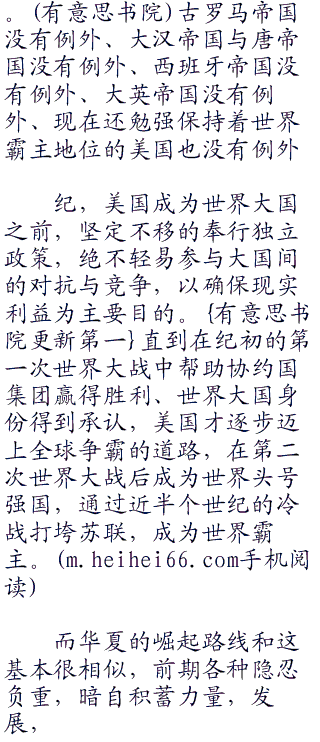 。(有意思书院)古罗马帝国
没有例外、大汉帝国与唐帝
国没有例外、西班牙帝国没
有例外、大英帝国没有例
外、现在还勉强保持着世界
霸主地位的美国也没有例外
纪，美国成为世界大国
之前，坚定不移的奉行独立
政策，绝不轻易参与大国间
的对抗与竞争，以确保现实
利益为主要目的。{有意思书
院更新第一}直到在纪初的第
一次世界大战中帮助协约国
集团赢得胜利、世界大国身
份得到承认，美国才逐步迈
上全球争霸的道路，在第二
次世界大战后成为世界头号
强国，通过近半个世纪的冷
战打垮苏联，成为世界霸
主。(m.heihei66.com手机阅
读)
而华夏的崛起路线和这
基本很相似，前期各种隐忍
负重，暗自积蓄力量，发
展，